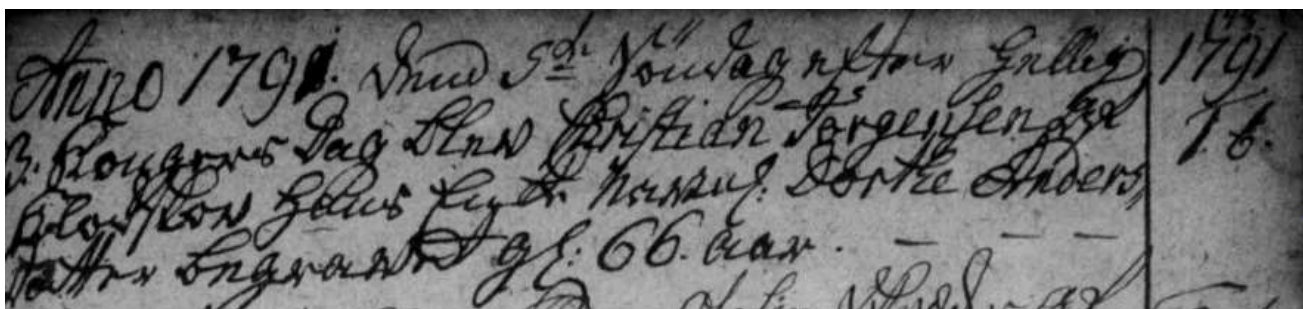 Anno 1791. dend 5de Søndag efter Hellig 1791
3. Kongers Dag blev Christian Jørgensen af T. 6.
Hans Enke Navnl: Dorthe Anders
datter begravet gl: 66. aar. — — —